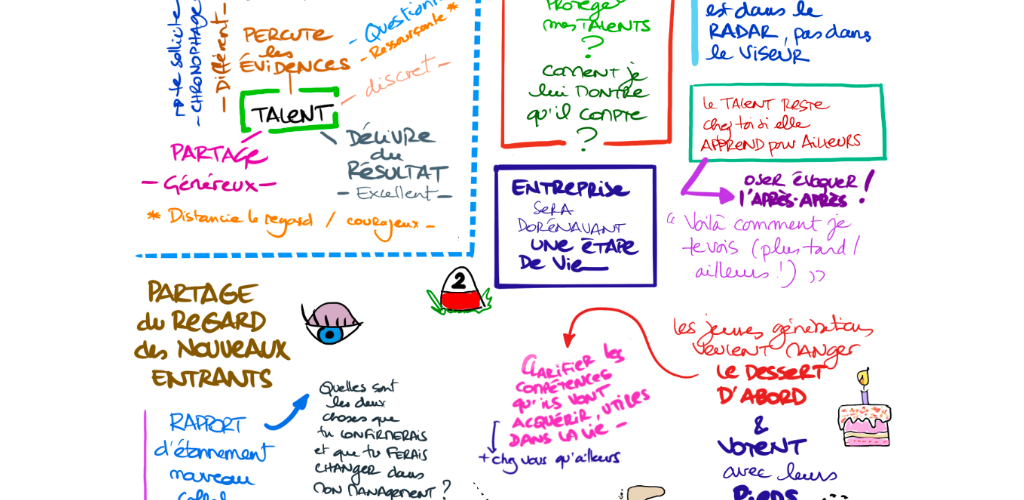 np te sollicite
- CHRONOPHAGE
- Différent -
PERCUTE
les
ÉVIDENCES
- Ressourçante *
- discret -
TALENT
PARTAGE
- Généreux -
DÉLIVRE
du
RÉSULTAT
- Excellent -
* Distancie le regard / courageux -
PROTÉGER
mes TALENTS
?
COMENT je
lui MONTRE
qu'il COMPTE
?
est dans le
RADAR, pas dans
le VISEUR
le TALENT RESTE
chez toi si elle
APPREND pour AILLEURS
OSER ÉVOQUER !
l'APRÈS-APRÈS !
“ Voilà comment je
te vois (plus tard /
ailleurs !) ”
ENTREPRISE
SERA
DORÉNAVANT
UNE ÉTAPE
DE Vie
2
PARTAGE
du REGARD
des NOUVEAUX
ENTRANTS
RAPPORT
d'étonnement
nouveau
Quelles sont
les deux
choses que
tu CONFIRMERAIS
et que tu FERAIS
CHANGER dans
MON MANAGEMENT ?
CLARIFIER les
COMPÉTENCES
qu'ils VONT
ACQUÉRIR, UTILES
DANS LA VIE -
+ chez vous qu'ailleurs
les jeunes générations
VEULENT MANGER
LE DESSERT
D'ABORD
&
VOTENT
avec leurs
PIEDS ...